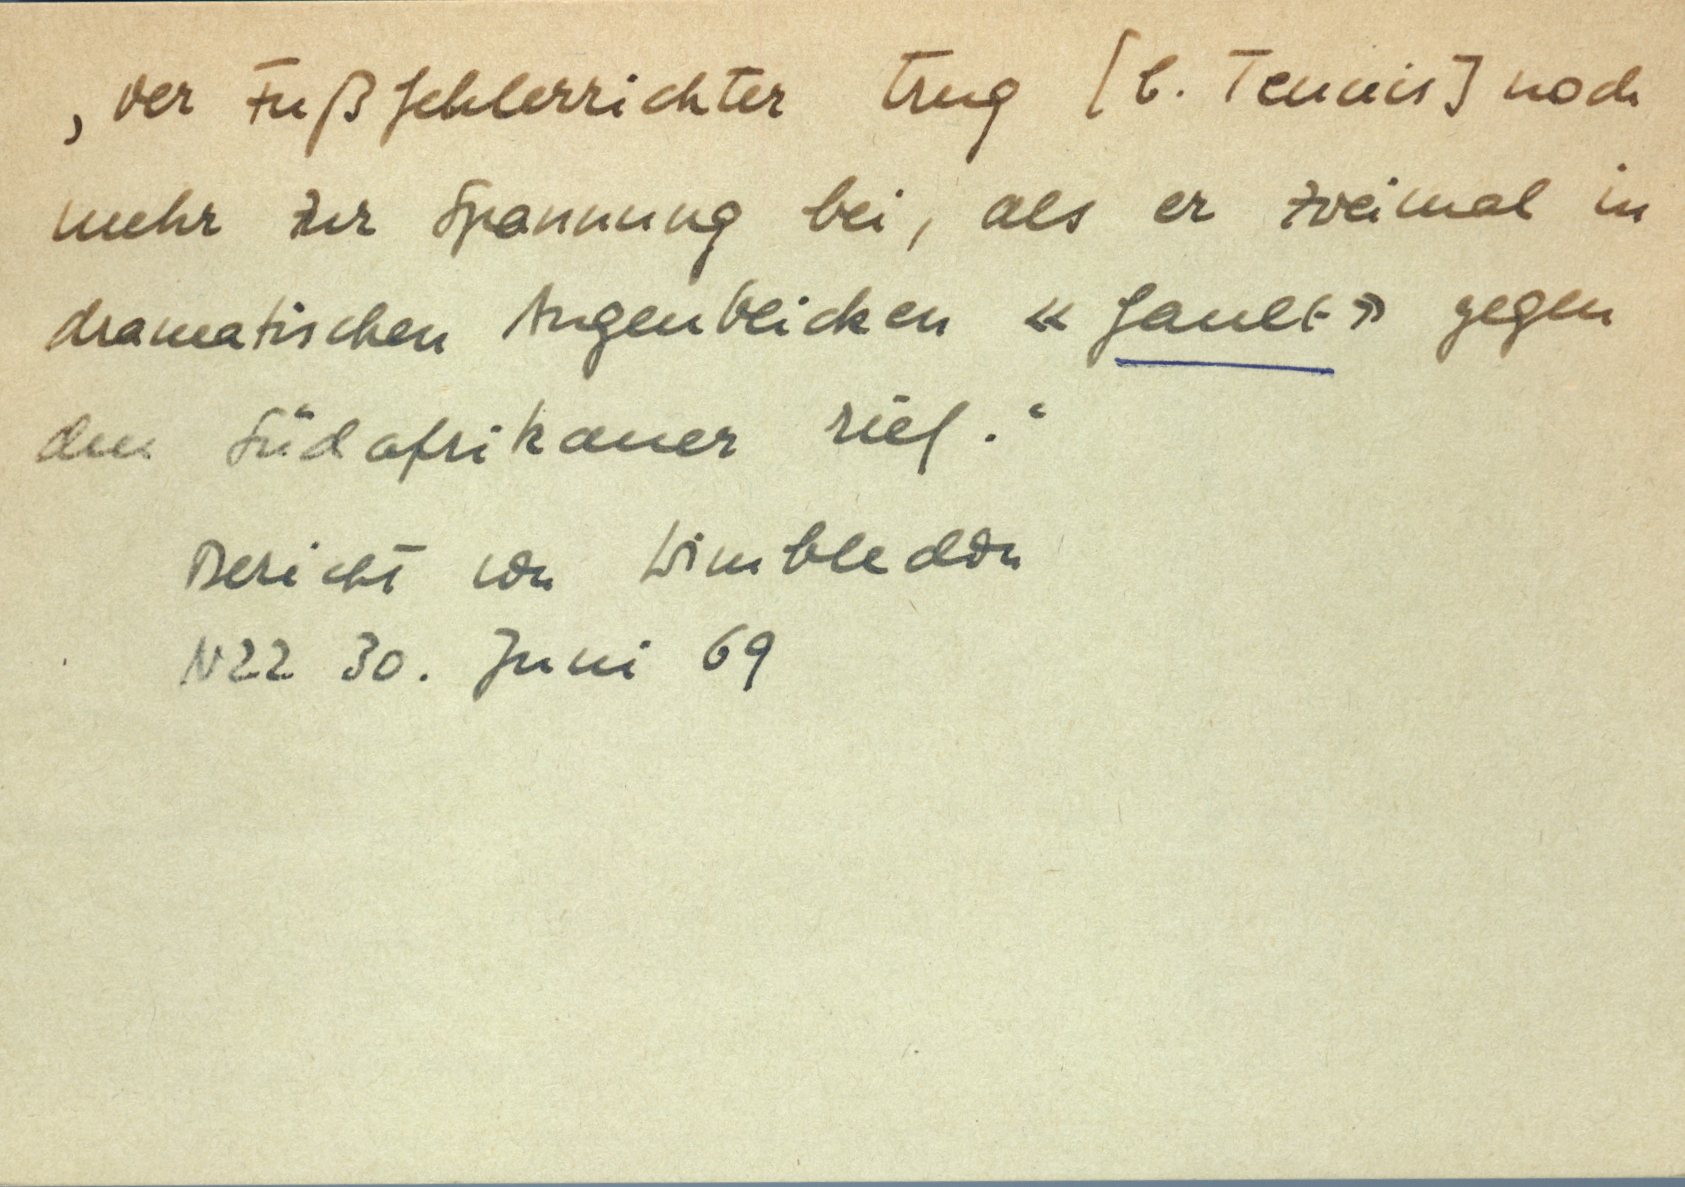 ‚der Fußfehlerrichter trug [b. Tennis] noch
mehr zur Spannung bei, als er zweimal in
dramatischen Augenblicken «fault» gegen
den Südafrikaner rief.‘
Bericht von Wimbledon
NZZ 30. Juni 69